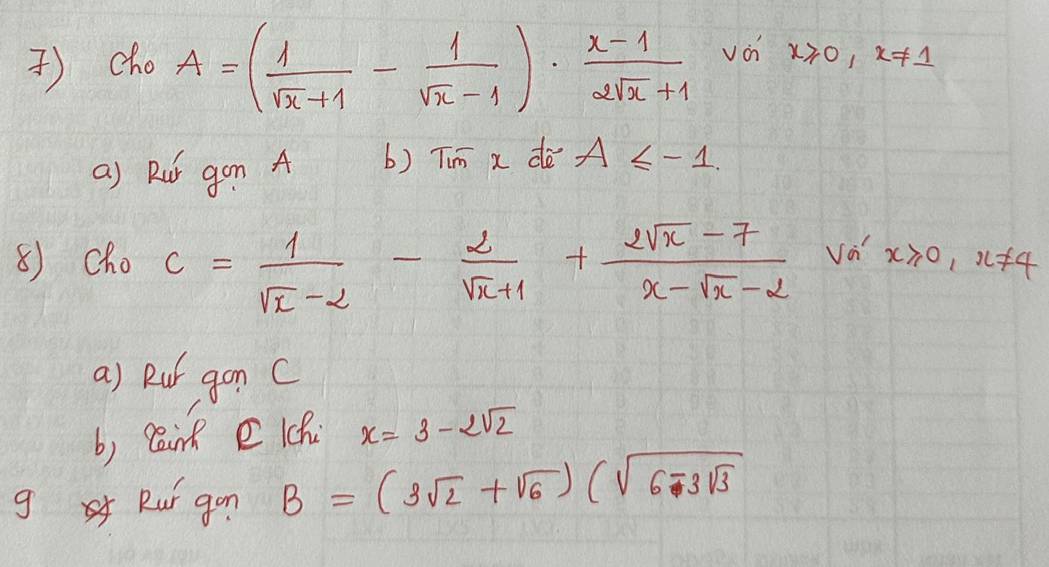 7) Cho A = (1/(√x+1) − 1/(√x−1)) · (x−1)/(2√x+1) với x⩾0, x≠1
a) Rút gọn A b) Tìm x để A ≤ −1.
8) Cho C = 1/(√x−2) − 2/(√x+1) + (2√x−7)/(x−√x−2) với x⩾0, x≠4
a) Rút gọn C
b) Tính C khi x = 3−2√2
9 Rút gọn B = (3√2 + √6)(√(6−3√3)